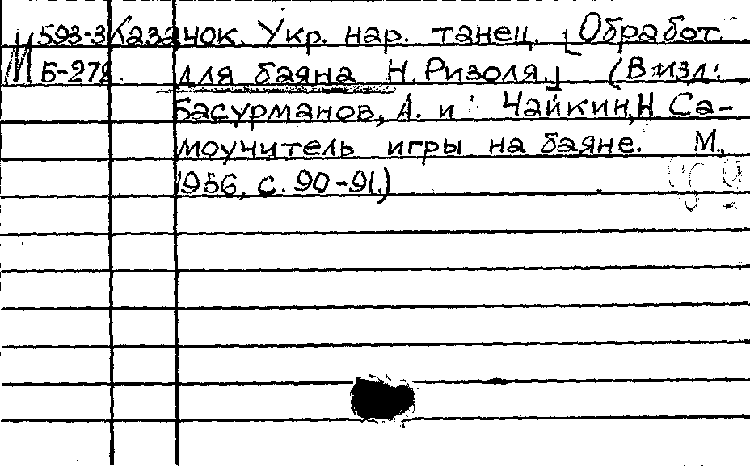 М 593-3 Казачок. Укр. нар. танец. [Обработ.
Б-278. для баяна Н. Ризоля.] (В изд.:
Басурманов, А. и Чайкин, Н. Са-
моучитель игры на баяне. М.,
1956, с. 90-91.)